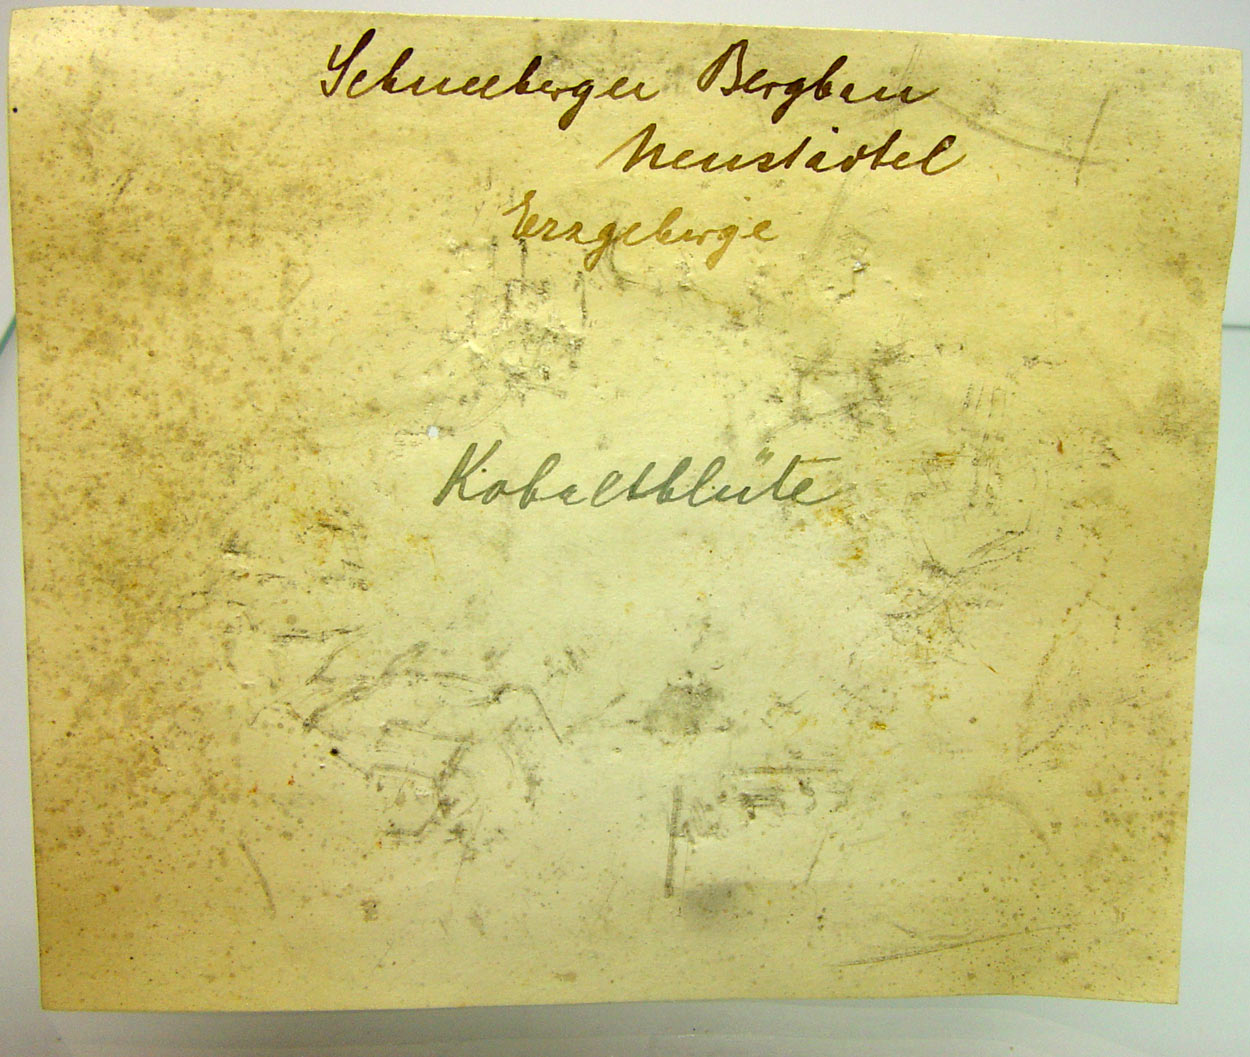 Schneeberger Bergbau
Neustädtel
Erzgebirge
Kobaltblüte